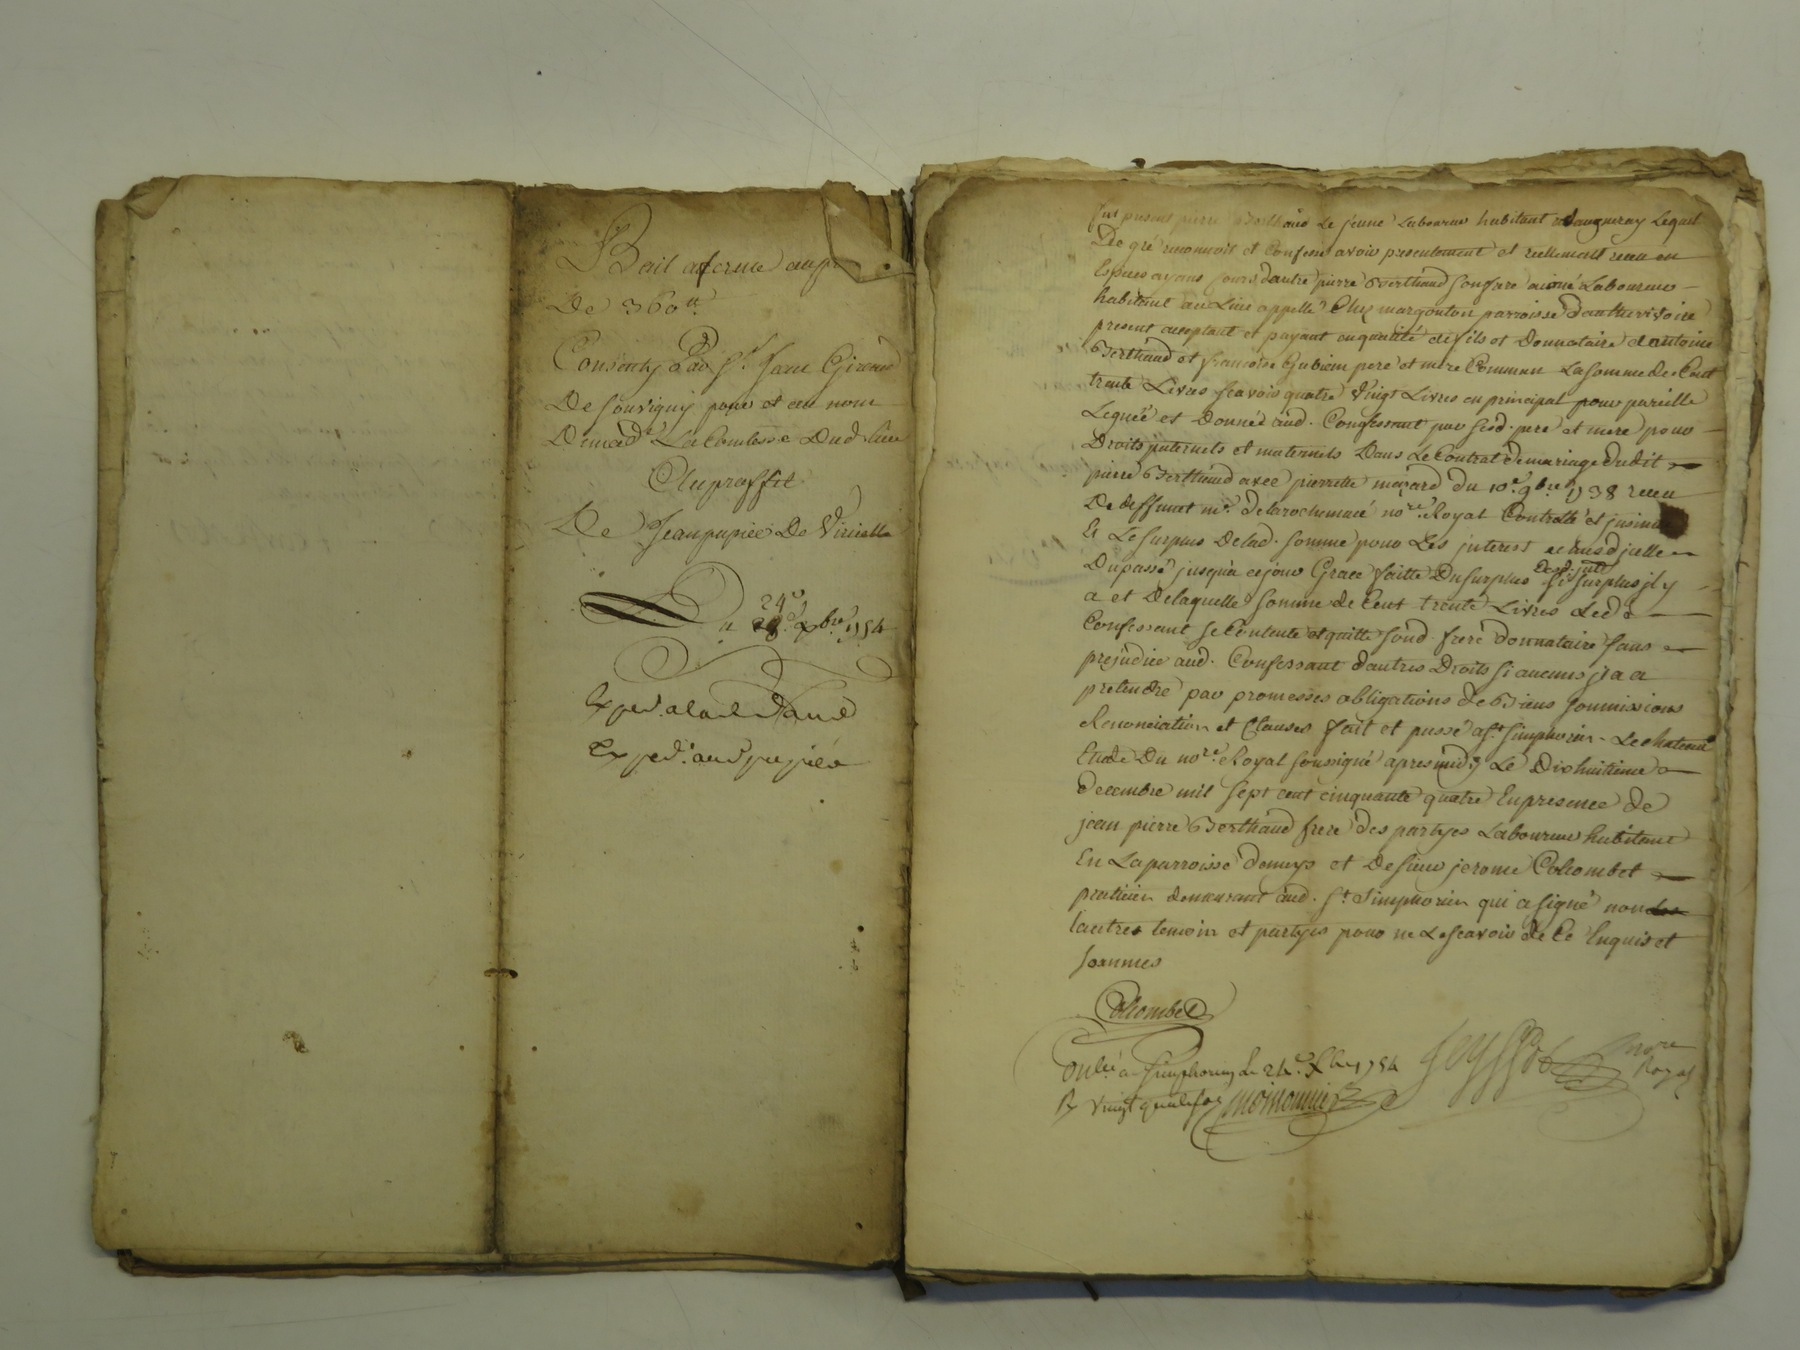 Bail a ferme au p
De 360 ᵗᵗ
Consenty Par Sʳ Jean Giraud
De Souvigny pour et au nom
De mad.ᵉ La Comtesse Dud. lieu
Au proffit
De Jean pupier De Viricelle
Du 24ᵉ xbre 1754
Exped. a lad. Dame
Exped. aud. pupier
fut present pierre Berthaud Le jeune Laboureur habitant Lequel
De gré reconnoit et Confesse avoir presentement et reellement receu en
Especes ayant Cours dautre pierre Berthaud son frere aisné Laboureur
habitant au Lieu appellé Chez margouton parroisse
present acceptant et payant en qualité de fils et Donnataire dantoine
Berthaud et françoise Gubian pere et mere Commun La somme de Cent
trente Livres scavoir quatre Vingt Livres en principal pour pareille
Leguée et Donnée aud. Confessant par sesd. pere et mere pour
Droits paternels et maternels Dans Le Contrat de mariage dudit
pierre Berthaud avec pierrette mazard du 10ᵉ 9bre 1738 receu
De deffunct mᵉ Delarochemacé noʳᵉ Royal Controllé et jnsinué
Et Le surplus De lad. somme pour Les jnterest echus djcelle
Du passé jusqua ce jour Grace faitte Du surplus desd. jntts si surplus jl y
a et De laquelle somme de Cent trente Livres Led.
Confessant se Contente et quitte sond. frere donnataire sans
prejudice aud. Confessant dautres Droits si aucuns jl a a
pretendre par promesses obligations de Biens soumissions
Renonciation et Clauses fait et passé a Sᵗ Simphorien Le chateau
Etude Du noʳᵉ Royal soussigné apres midy Le Dixhuitieme
decembre mil sept cent cinquante quatre En presence de
jean pierre Berthaud frere des partyes Laboureur habitant
En La parroisse et De sieur jerome Collombet
praticien demeurant aud. Sᵗ Simphorien qui a signé non
lautre temoin et partyes pour ne Le scavoir de Ce Enquis et
sommés
Collombet
Conlé a Simphorien le 24ᵉ Xbre 1754
R vingt quatre sols
noʳᵉ
Royal